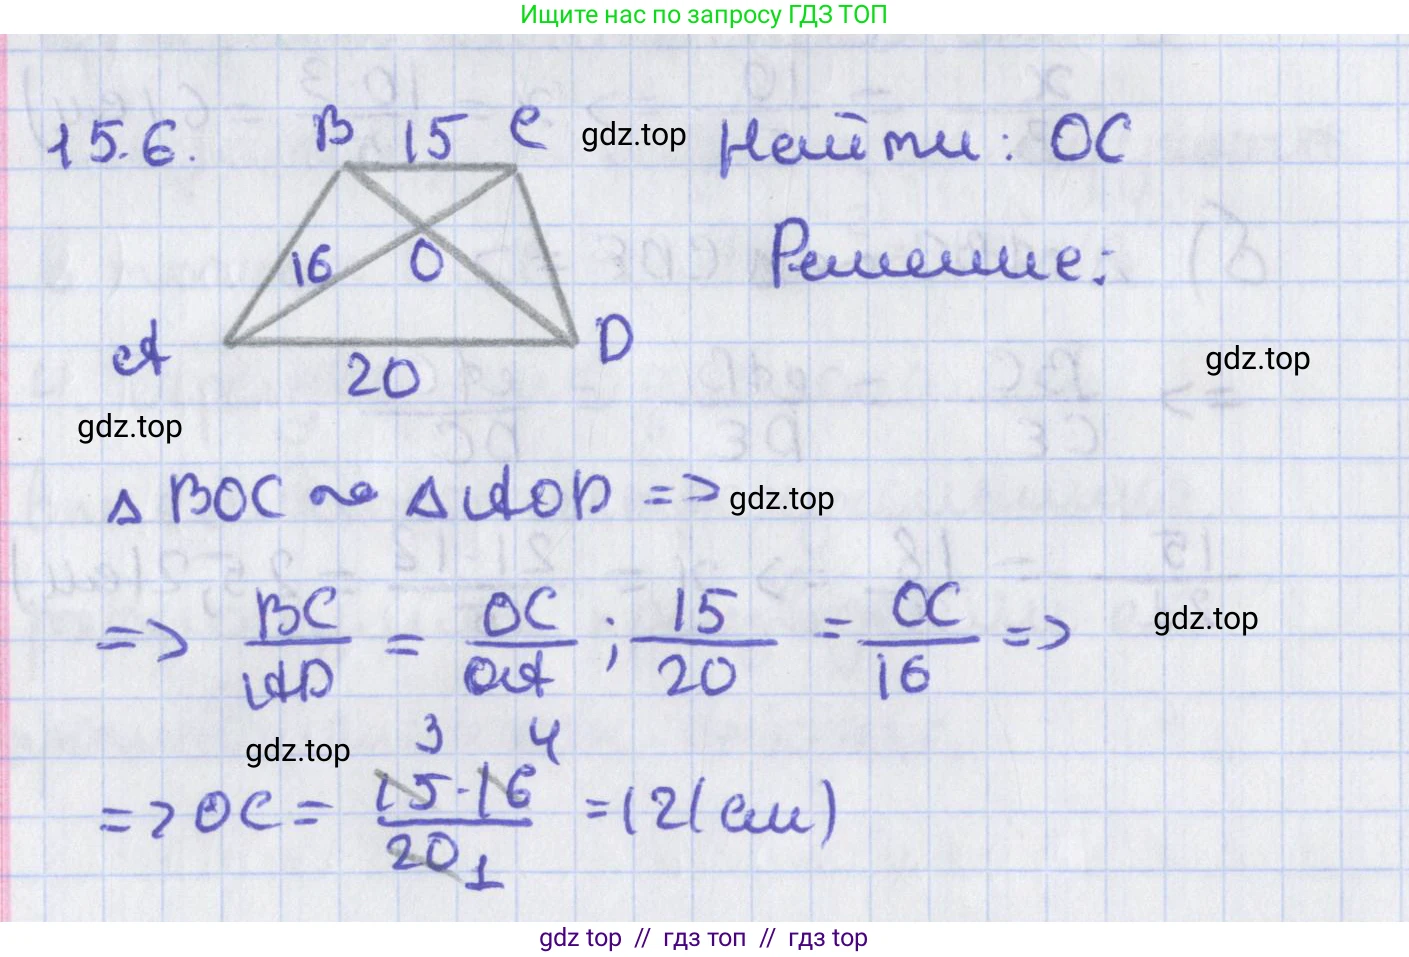 Ищите нас по запросу ГДЗ ТОП
15.6. B 15 C gdz.top Найти: OC
16 O Решение:
A 20 D gdz.top
gdz.top
△ BOC ~ △ AOD => gdz.top
=> BC/AD = OC/OA ; 15/20 = OC/16 => gdz.top
gdz.top 3 4
=> OC = 15·16/20 1 = 12 (см)
gdz top // гдз топ // гдз top